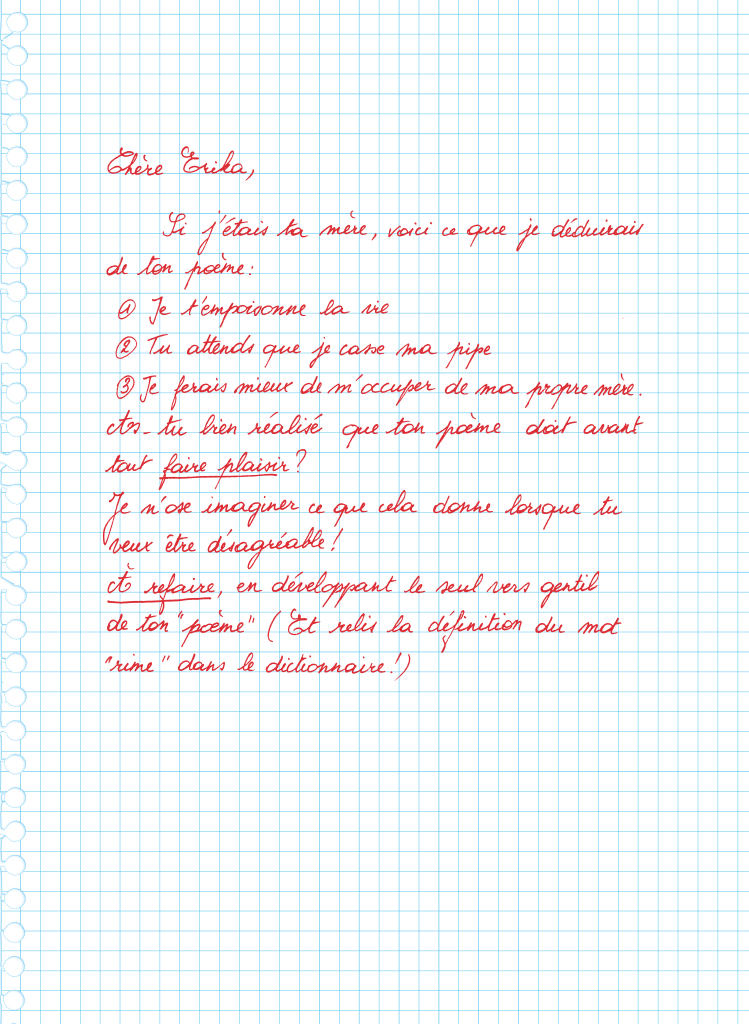 Chère Erika,
Si j'étais ta mère, voici ce que je déduirais
de ton poème :
① Je t'empoisonne la vie
② Tu attends que je casse ma pipe
③ Je ferais mieux de m'occuper de ma propre mère.
As-tu bien réalisé que ton poème doit avant
tout faire plaisir ?
Je n'ose imaginer ce que cela donne lorsque tu
veux être désagréable !
À refaire, en développant le seul vers gentil
de ton "poème" ( Et relis la définition du mot
"rime" dans le dictionnaire !)